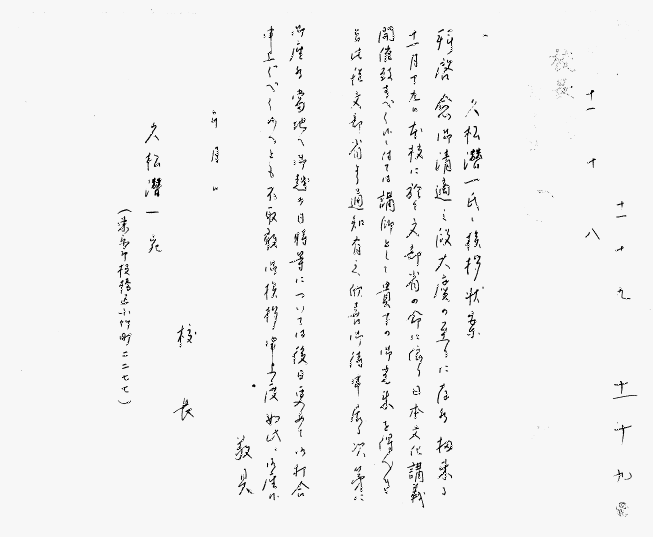 十一 十九
十一 十九
十一 十 八
校長
久松潜一氏ヘ挨拶状案
拝啓 愈御清適之段大慶の至りに存候 扨来る
十一月十九日本校に於て文部省の命に依り日本文化講義
開催致すべく候に付ては講師として貴台の御光来を得べき
旨此程文部省より通知有之欣喜御待申居る次第に
御座候 当地へ御越の日時等については後日更めて御打合
申上ぐべく候へとも不取敢御挨拶申上度如此に御座候
敬具
年 月 日
校 長
久松潜一宛
(東京市板橋区小竹町二二七七)